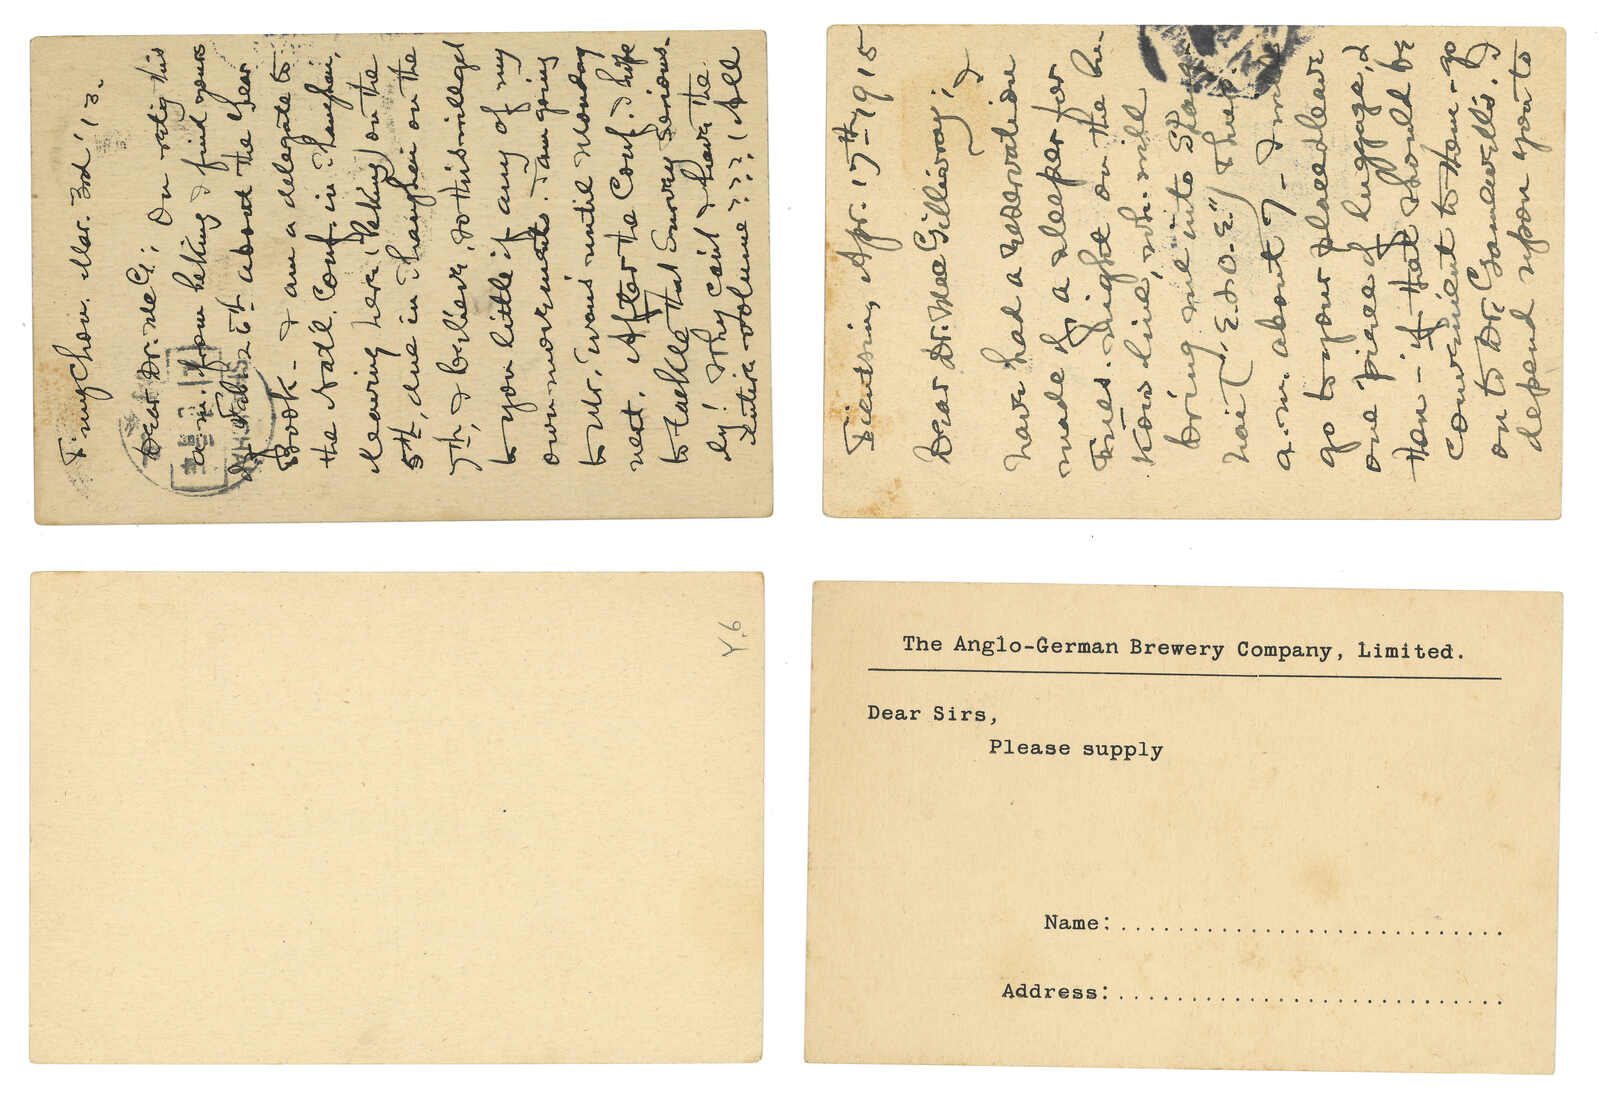 Tungchou. Mar. 3rd '13.
Dear Dr. McG: On rat'g this
a.m. from Peking I find yours
of Feb. 25th about the Year
Book - I am a delegate to
the Nat'l. Conf. in Shanghai,
leaving here (Peking) on the
5th, due in Shanghai on the
7th, I believe, so this will get
to you little if any of my
own movements. I am going
to Mr. Evans until Monday
next. After the Conf. I hope
to tackle that Survey serious-
ly! Why can't I have the
entire volume???! All
Tientsin, Apr. 17th 1915
Dear Dr. MacGillivray; I
have had a reservation
made of a sleeper for
Tues. night on the Pu-
Kow line, wh. will
bring me into Shang-
hai ("E. & O. E.") Thurs
a.m. about 7 - I may
go to your place & leave
one piece of luggage, &
then - if that should be
convenient to them - go
on to Dr. Gamewell's. I
depend upon you to
Y.6
The Anglo-German Brewery Company, Limited.
Dear Sirs,
Please supply
Name:..............................
Address:..............................